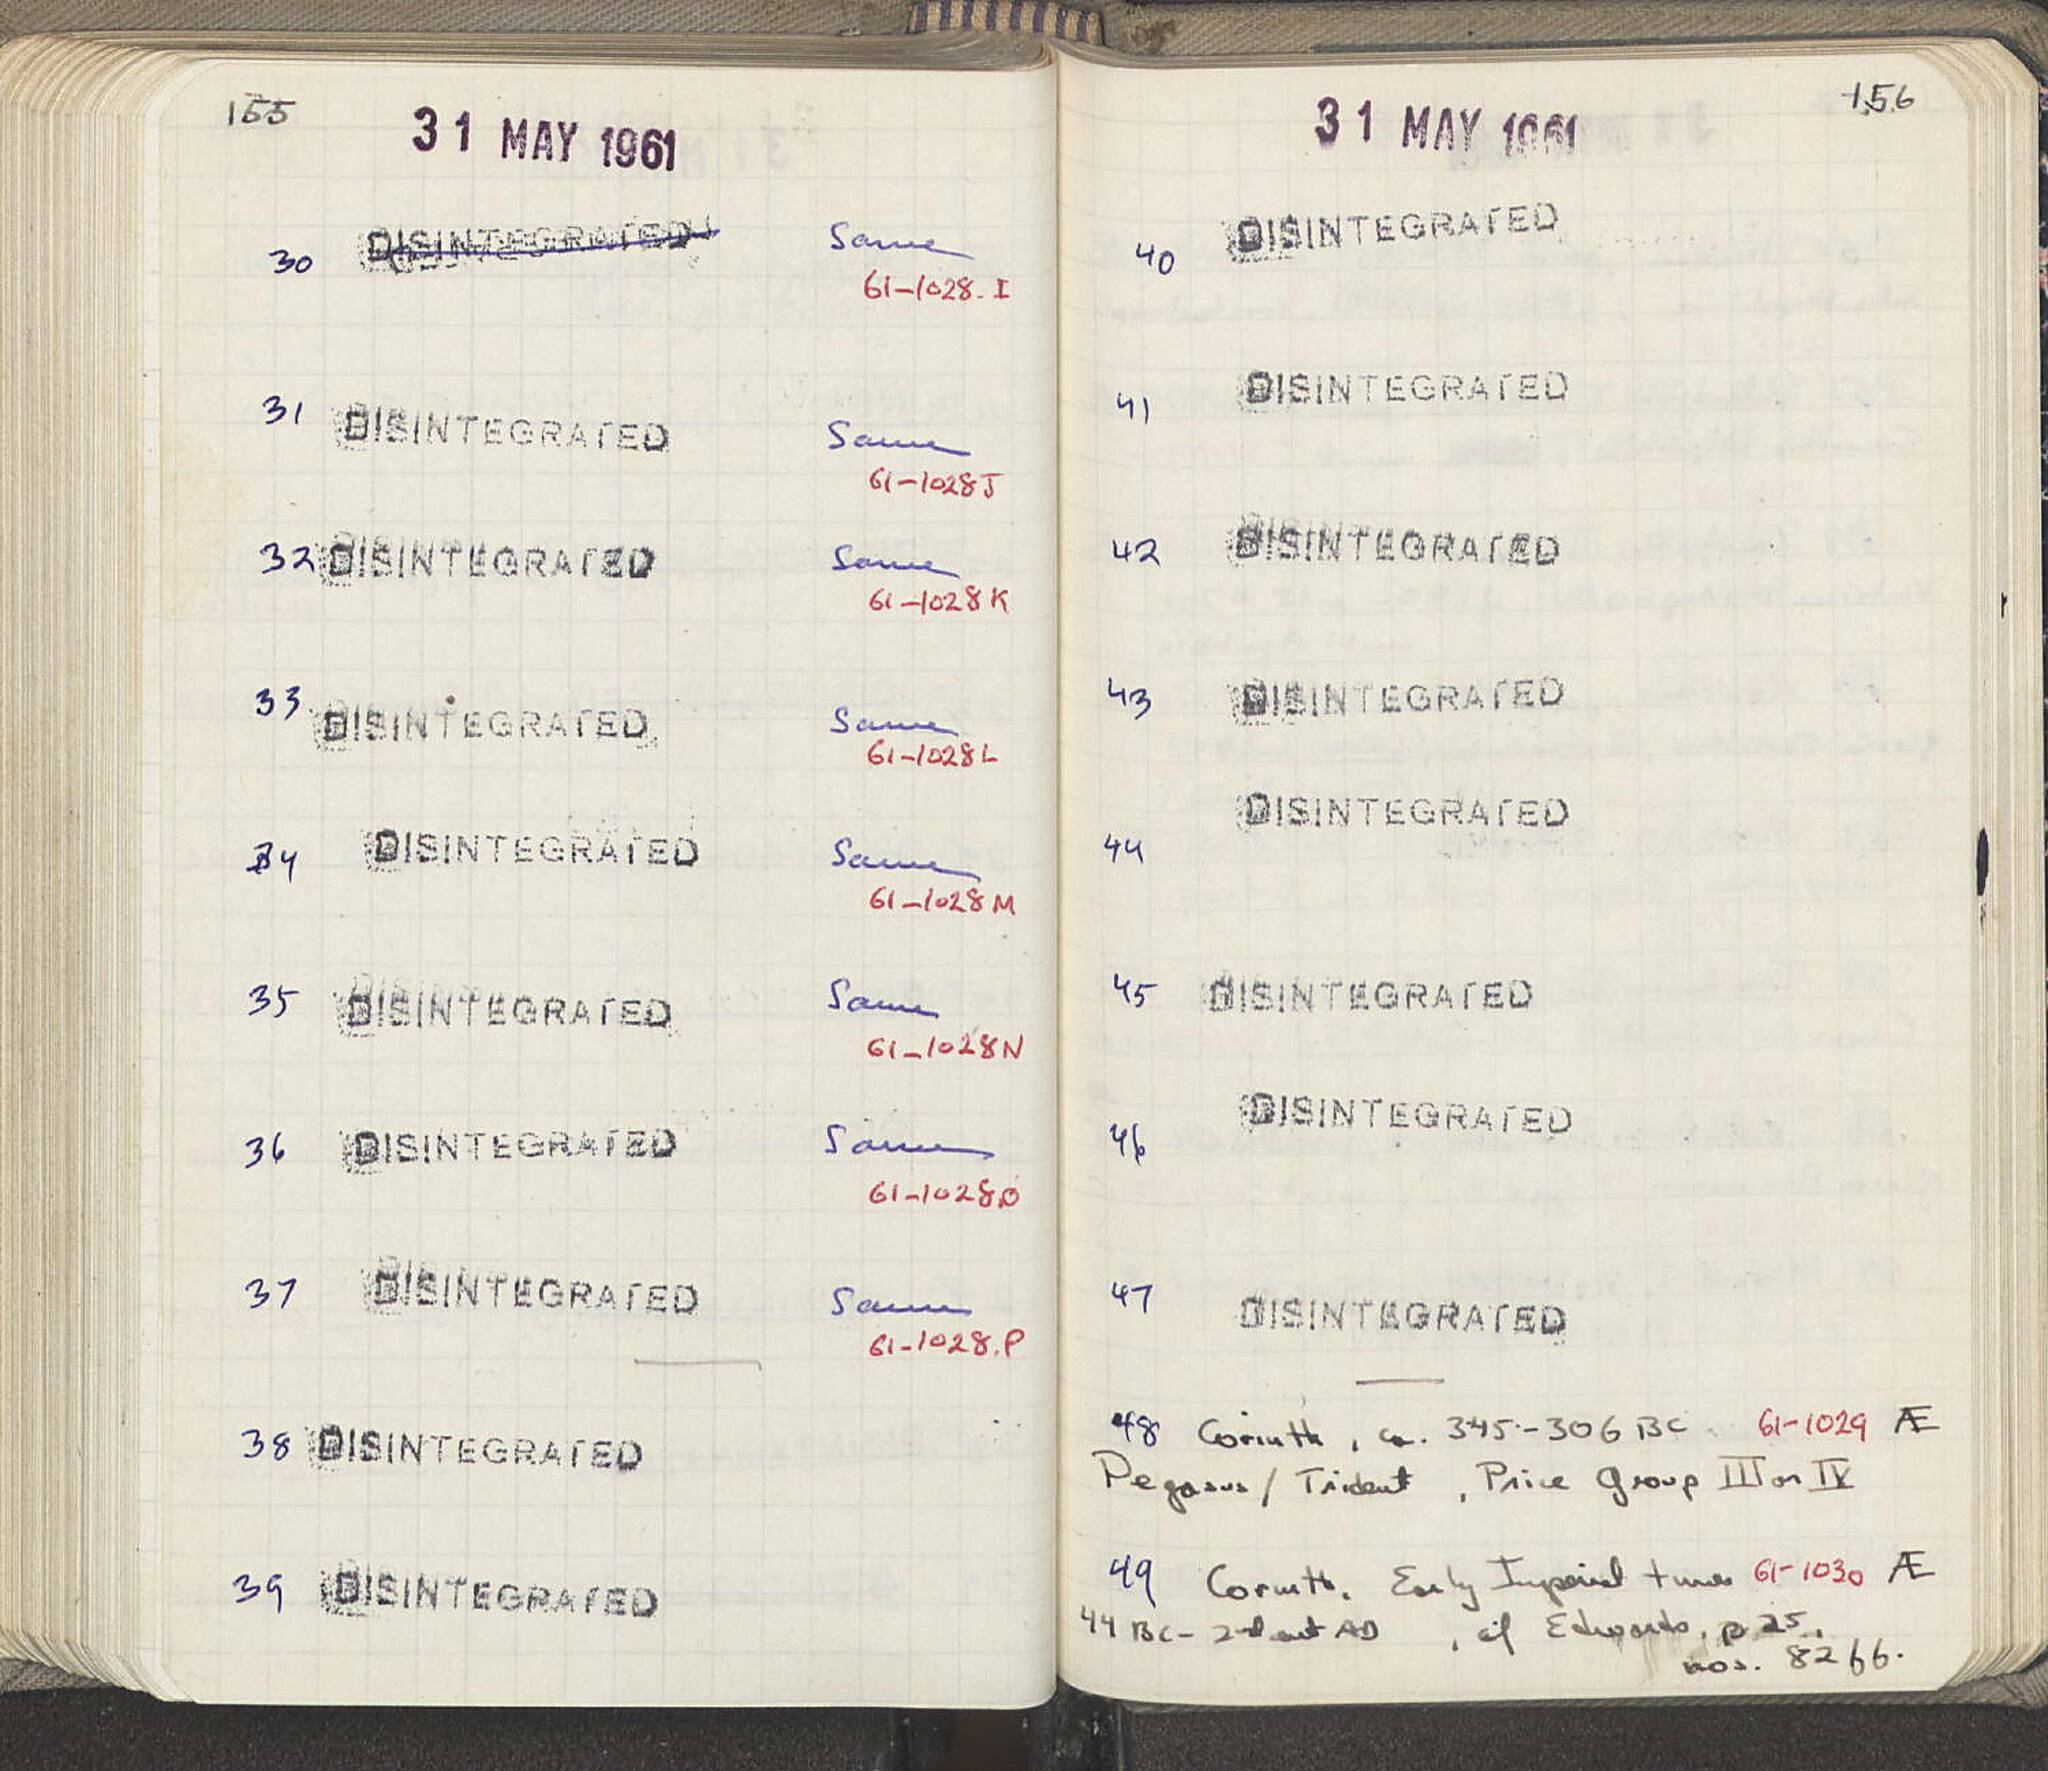 155
31 MAY 1961
30 DISINTEGRATED Same
61-1028.I
31 DISINTEGRATED Same
61-1028J
32 DISINTEGRATED Same
61-1028K
33 DISINTEGRATED Same
61-1028L
34 DISINTEGRATED Same
61-1028M
35 DISINTEGRATED Same
61-1028N
36 DISINTEGRATED Same
61-1028O
37 DISINTEGRATED Same
61-1028.P
38 DISINTEGRATED
39 DISINTEGRATED
156
31 MAY 1961
40 DISINTEGRATED
41 DISINTEGRATED
42 DISINTEGRATED
43 DISINTEGRATED
44 DISINTEGRATED
45 DISINTEGRATED
46 DISINTEGRATED
47 DISINTEGRATED
48 Corinth, ca. 345-306 BC 61-1029 Æ
Pegasus / Trident, Price Group III or IV
49 Corinth. Early Imperial times 61-1030 Æ
44 BC - 2nd cent AD, cf Edwards, p 25,
nos. 82 ff.